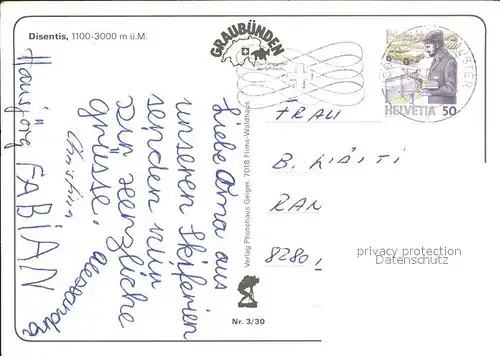 Disentis, 1100-3000 m ü.M.
GRAUBÜNDEN
HELVETIA 50
Liebe Oma aus
unseren Skiferien
senden wir
Dir herzliche
Grüsse.
Alessandra
Christina
FABIAN
Hansjörg
Verlag Photohaus Geiger, 7018 Flims-Waldhaus
FRAU
B.
RAN
8280
privacy protection
Datenschutz
Nr. 3/30